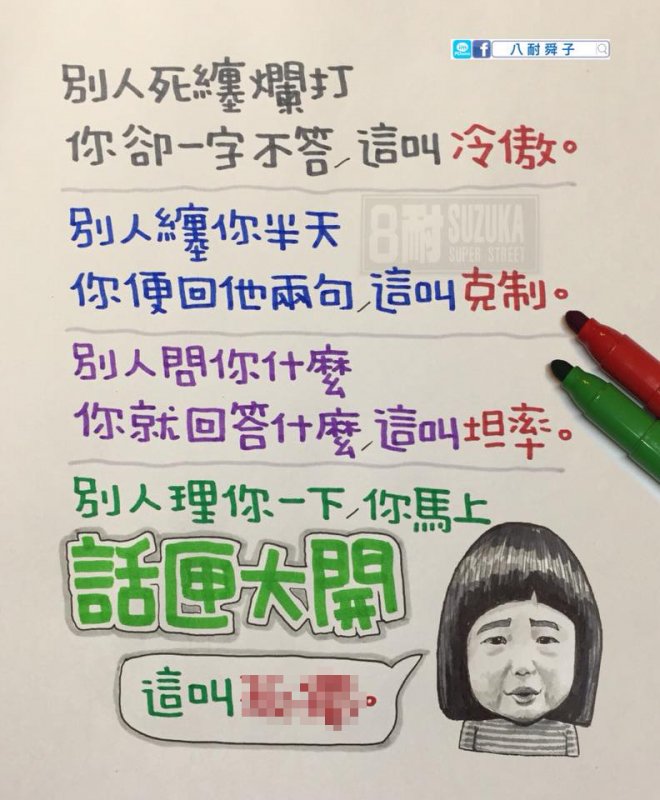 八耐舜子
別人死纏爛打
你卻一字不答，這叫冷傲。
8耐 SUZUKA
SUPER STREET
別人纏你半天
你便回他兩句，這叫克制。
別人問你什麼
你就回答什麼，這叫坦率。
別人理你一下，你馬上
話匣大開
這叫